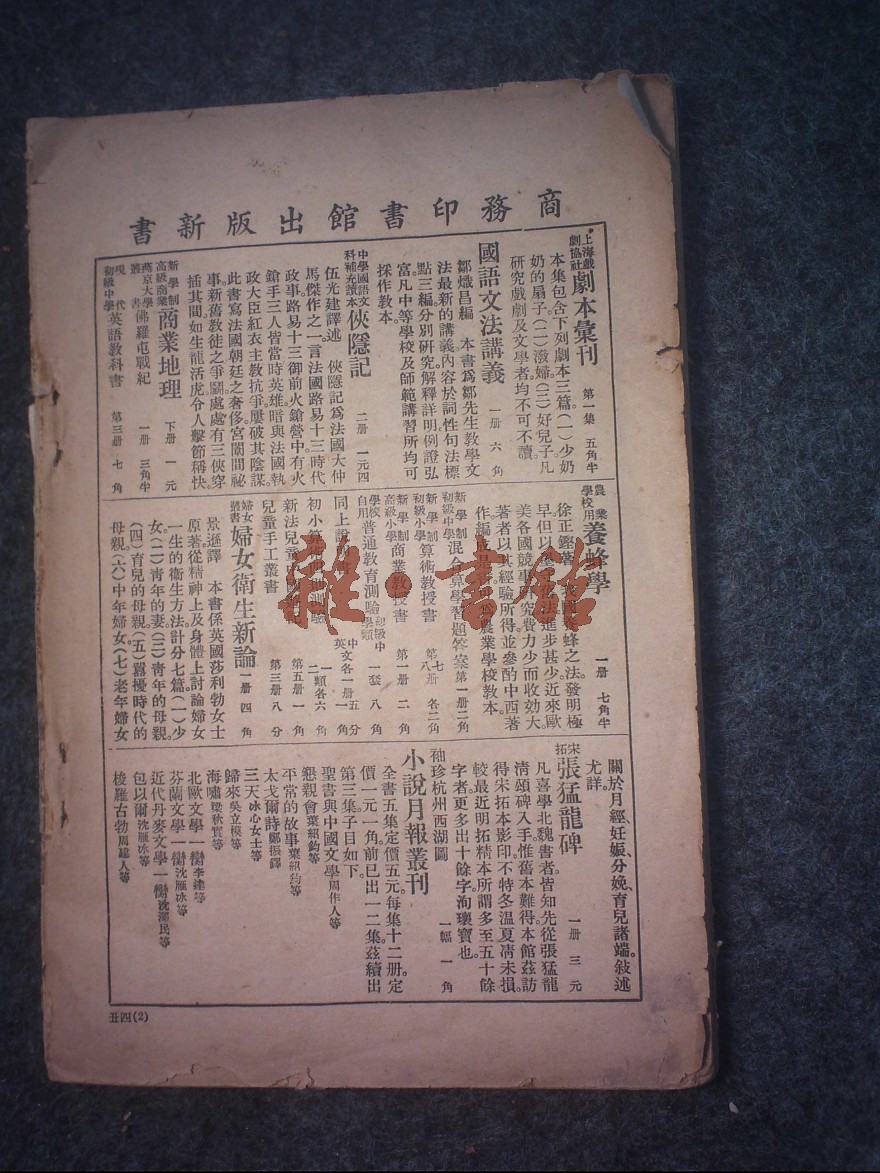 商務印書館出版新書
上海戲劇協社 劇本彙刊 第一集 五角半
本集包含下列劇本三篇(一)少奶
奶的扇子(二)潑婦(三)好兒子凡
研究戲劇及文學者均不可不讀
國語文法講義 一册 六角
鄒熾昌編 本書爲鄒先生教學文
法最新的講義內容於詞性句法標
點三編分別研究解釋詳明例證弘
富凡中等學校及師範講習所均可
採作教本
中學國語文科補充讀本 俠隱記 二册 一元四
伍光建譯述 俠隱記爲法國大仲
馬傑作之一言法國路易十三時代
政事路易十三御前火鎗營中有火
鎗手三人皆當時英雄暗與法國執
政大臣紅衣主教抗爭屢破其陰謀
此書寫法國朝廷之奢侈宮闈間祕
事新舊教徒之爭鬭處處有三俠穿
插其間如生龍活虎令人擊節稱快
新學制高級商業 商業地理 下册 一元
燕京大學叢書 佛羅屯戰紀 一册 三角半
現代初級中學 英語教科書 第三册 七角
農業學校用 養蜂學 一册 七角半
徐正鏗著 我國養蜂之法發明極
早但以 法進步甚少近來歐
美各國競事研究費力少而收効大
著者以其經驗所得並參酌中西著
作編成是書可爲農業學校教本
新學制初級中學 混合算學習題答案 第一册二角
新學制初級小學 算術教授書 七八册 各二角
新學制高級小學 商業教授書 第一册 二角
學校自用 普通教育測驗 初級中學類 一套 八角
同上說明書 中文各一册 一角 英 五分
初小算術四則測驗 一二類各六角
新法兒童 第五册 一角
兒童手工叢書 第三册 八分
婦女叢書 婦女衛生新論 一册 四角
景遜譯 本書係英國莎利勃女士
原著從精神上及身體上討論婦女
一生的衛生方法計分七篇(一)少
女(二)青年的妻(三)青年的母親
(四)育兒的母親(五)囂擾時代的
母親(六)中年婦女(七)老年婦女
關於月經妊娠、分娩、育兒諸端、敍述
尤詳。
宋拓 張猛龍碑 一册 三元
凡喜學北魏書者皆知先從張猛龍
淸頌碑入手惟舊本難得本館茲訪
得宋拓本影印不特冬温夏凊未損
較最近明拓精本所謂多至五十餘
字者更多出十餘字洵瓌寶也
袖珍杭州西湖圖 一幅 一角
小說月報叢刊
全書五集定價五元每集十二册定
價一元一角前已出一二集茲續出
第三集子目如下
聖書與中國文學 周作人等
懇親會 葉紹鈞等
平常的故事 葉紹鈞等
太戈爾詩 鄭振鐸
三天 冰心女士等
歸來 吳立模等
海嘯 梁秋實等
北歐文學一臠 李達等
芬蘭文學一臠 沈雁冰等
近代丹麥文學一臠 沈澤民等
包以爾 沈雁冰等
梭羅古勃 周建人等
丑四(2)
雜·書館